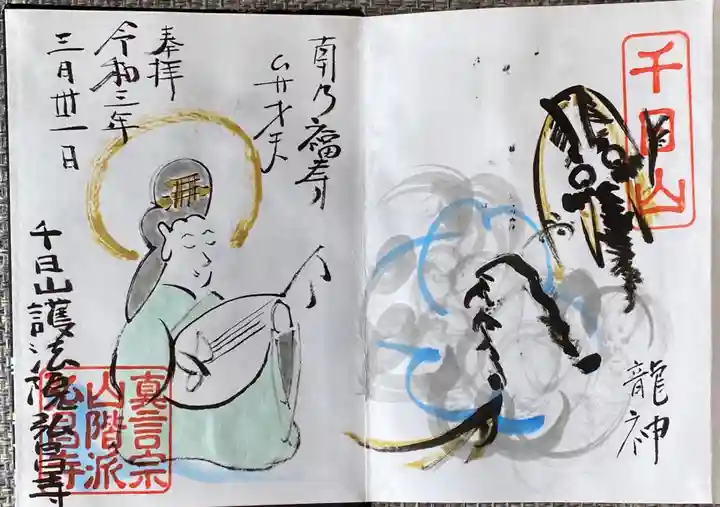 千日山
龍神
南乃福寿
弁才天
奉拝
令和三年
三月卅一日
千日山護法院弘昌寺
真言宗
山階派